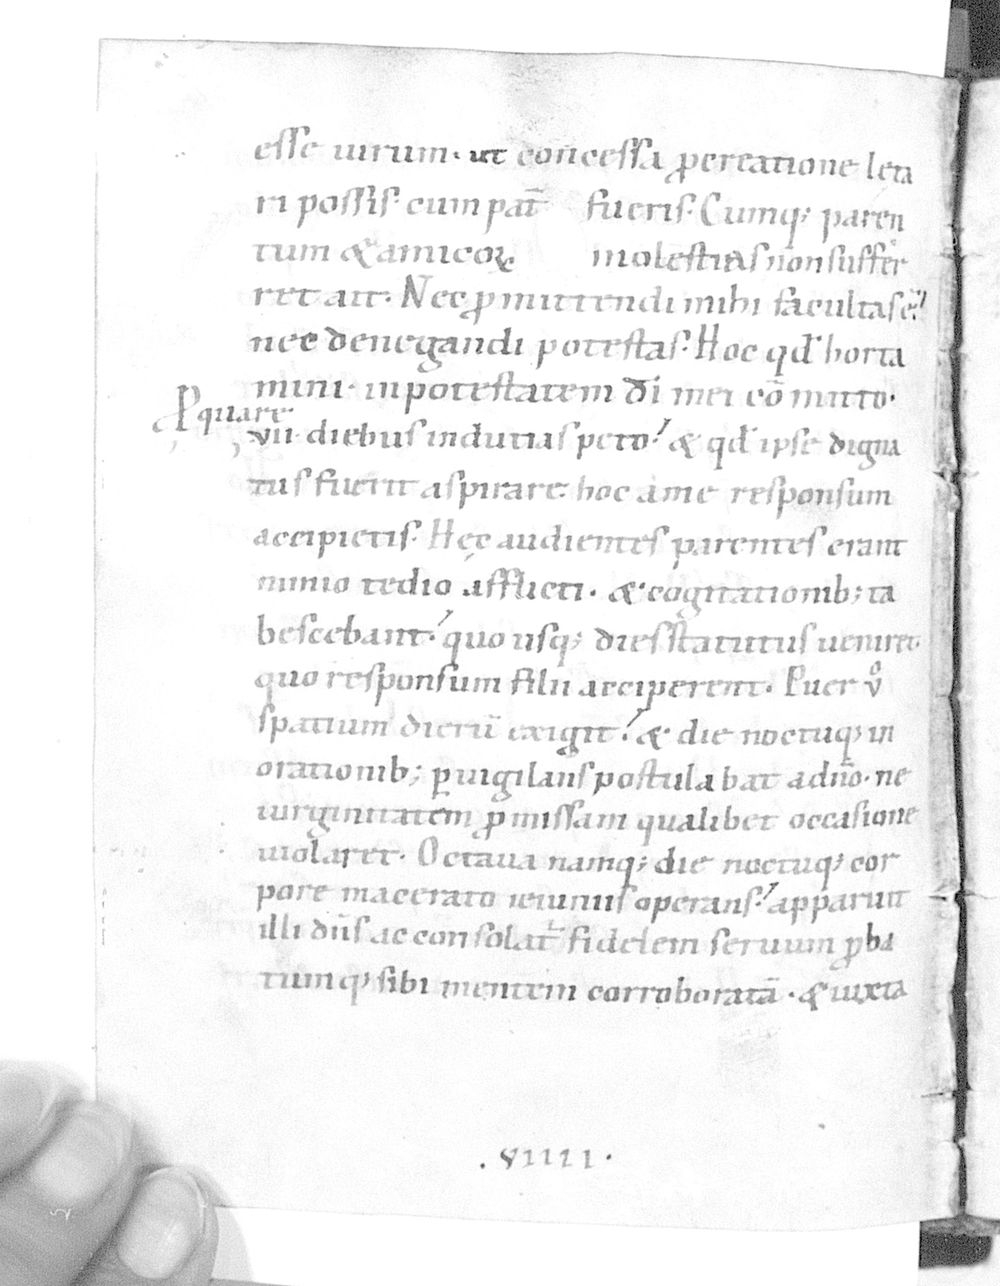 esse uirum. ut concessa ꝓcreatione leta
ri possis cum pat̄ fueris. Cumq; paren
tum & amicoꝝ molestias non suffer
ret ait. Nec ꝓmittendi mihi facultas ē.
nec denegandi potestas. Hoc qđ horta
mini. in potestatem dī mei cōmitto.
Quare
vii diebus indutias peto. & qđ ipse digna
tus fuerit aspirare hoc a me responsum
accipietis. Hęc audientes parentes erant
nimio tedio afflicti. & cogitationib; ta
bescebant. quo usq; dies statutus ueniret.
quo responsum filii acciperent. Puer v̊
spatium dierū exigit. & die noctuq; in
orationib; ꝑuigilans postulabat a dn̄o. ne
uirginitatem ꝓmissam qualibet occasione
uiolaret. Octaua namq; die noctuq; cor
pore macerato ieiuniis operans. apparuit
illi dn̄s ac consolat̄ fidelem seruum ꝓba
tumq; sibi mentem corroboratā. & iuxta
. VIIII .